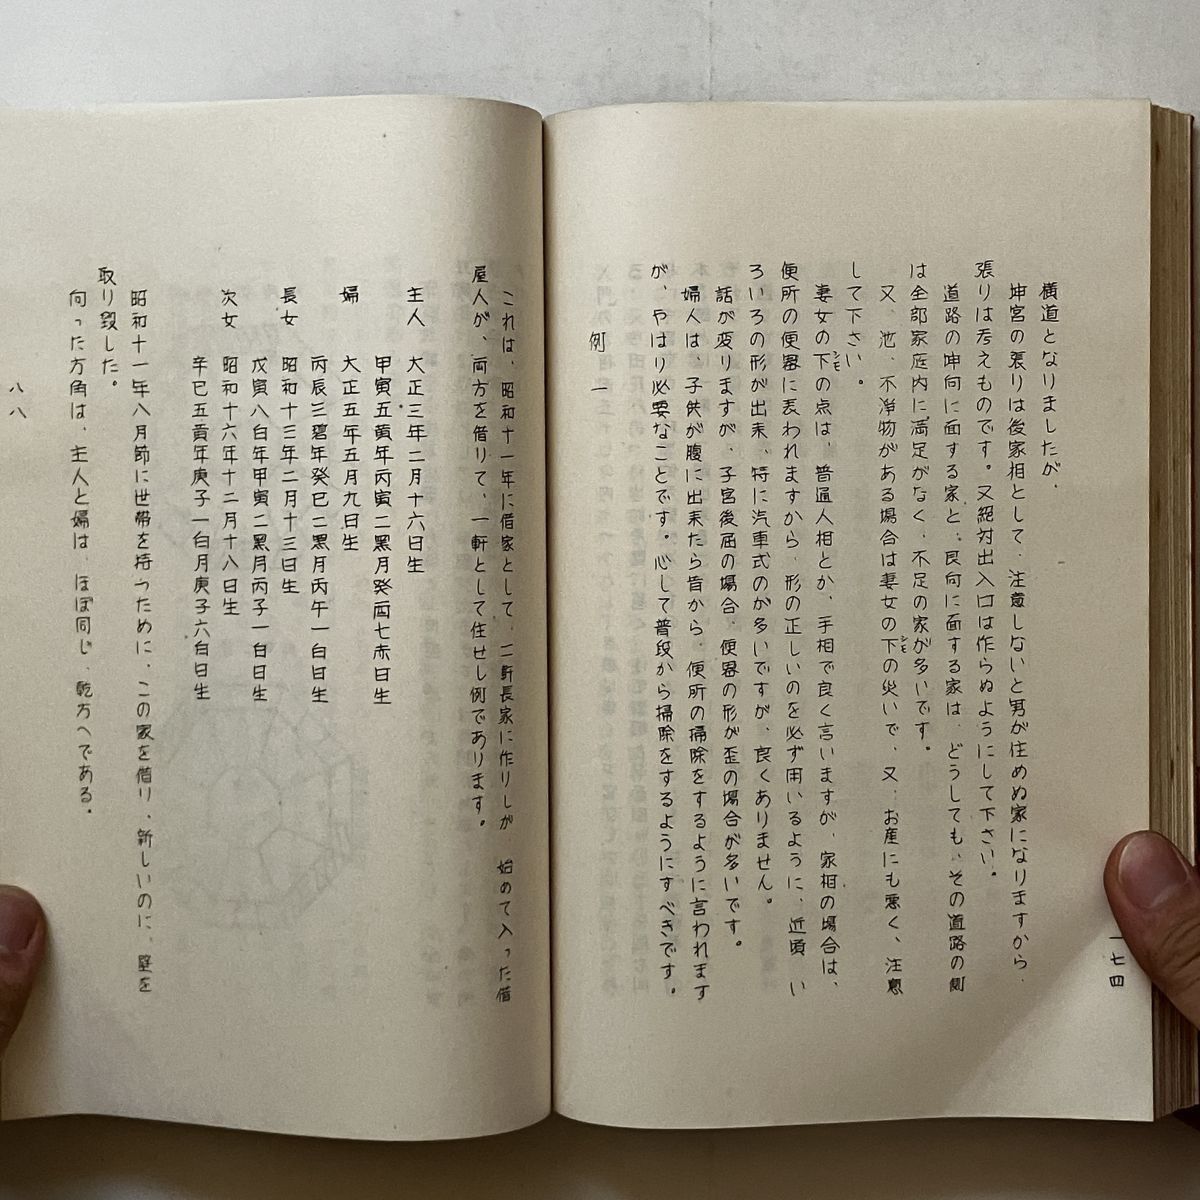 横道となりましたが、
坤宮の張りは後家相として、注意しないと男が住めぬ家になりますから、
張りは考えものです。又絶対出入口は作らぬようにして下さい。
道路の坤向に面する家と、艮向に面する家は、どうしても、その道路の側
は全部家庭内に満足がなく、不足の家が多いです。
又、池、不浄物がある場合は妻女の下の災いで、又、お産にも悪く、注意
シモ
して下さい。
妻女の下の点は、普通人相とか、手相で良く言いますが、家相の場合は、
シモ
便所の便器に表われますから、形の正しいのを必ず用いるように、近頃い
ろいろの形が出来、特に汽車式のが多いですが、良くありません。
話が変りますが、子宮後屈の場合、便器の形が歪の場合が多いです。
婦人は、子供が腹に出来たら昔から、便所の掃除をするように言われます
が、やはり必要なことです。心して普段から掃除をするようにすべきです。
例 一
一七四
これは、昭和十一年に借家として、二軒長家に作りしが、始めて入った借
屋人が、両方を借りて、一軒として住せし例であります。
主人 大正三年二月十六日生
甲寅五黄年丙寅二黒月癸酉七赤日生
婦 大正五年五月九日生
丙辰三碧年癸巳二黒月丙午一白日生
長女 昭和十三年二月十三日生
戊寅八白年甲寅二黒月丙子一白日生
次女 昭和十六年十二月十八日生
辛巳五黄年庚子一白月庚子六白日生
昭和十一年八月節に世帯を持つために、この家を借り、新しいのに、壁を
取り毀した。
向った方角は、主人と婦は、ほぼ同じ、乾方へである。
八八